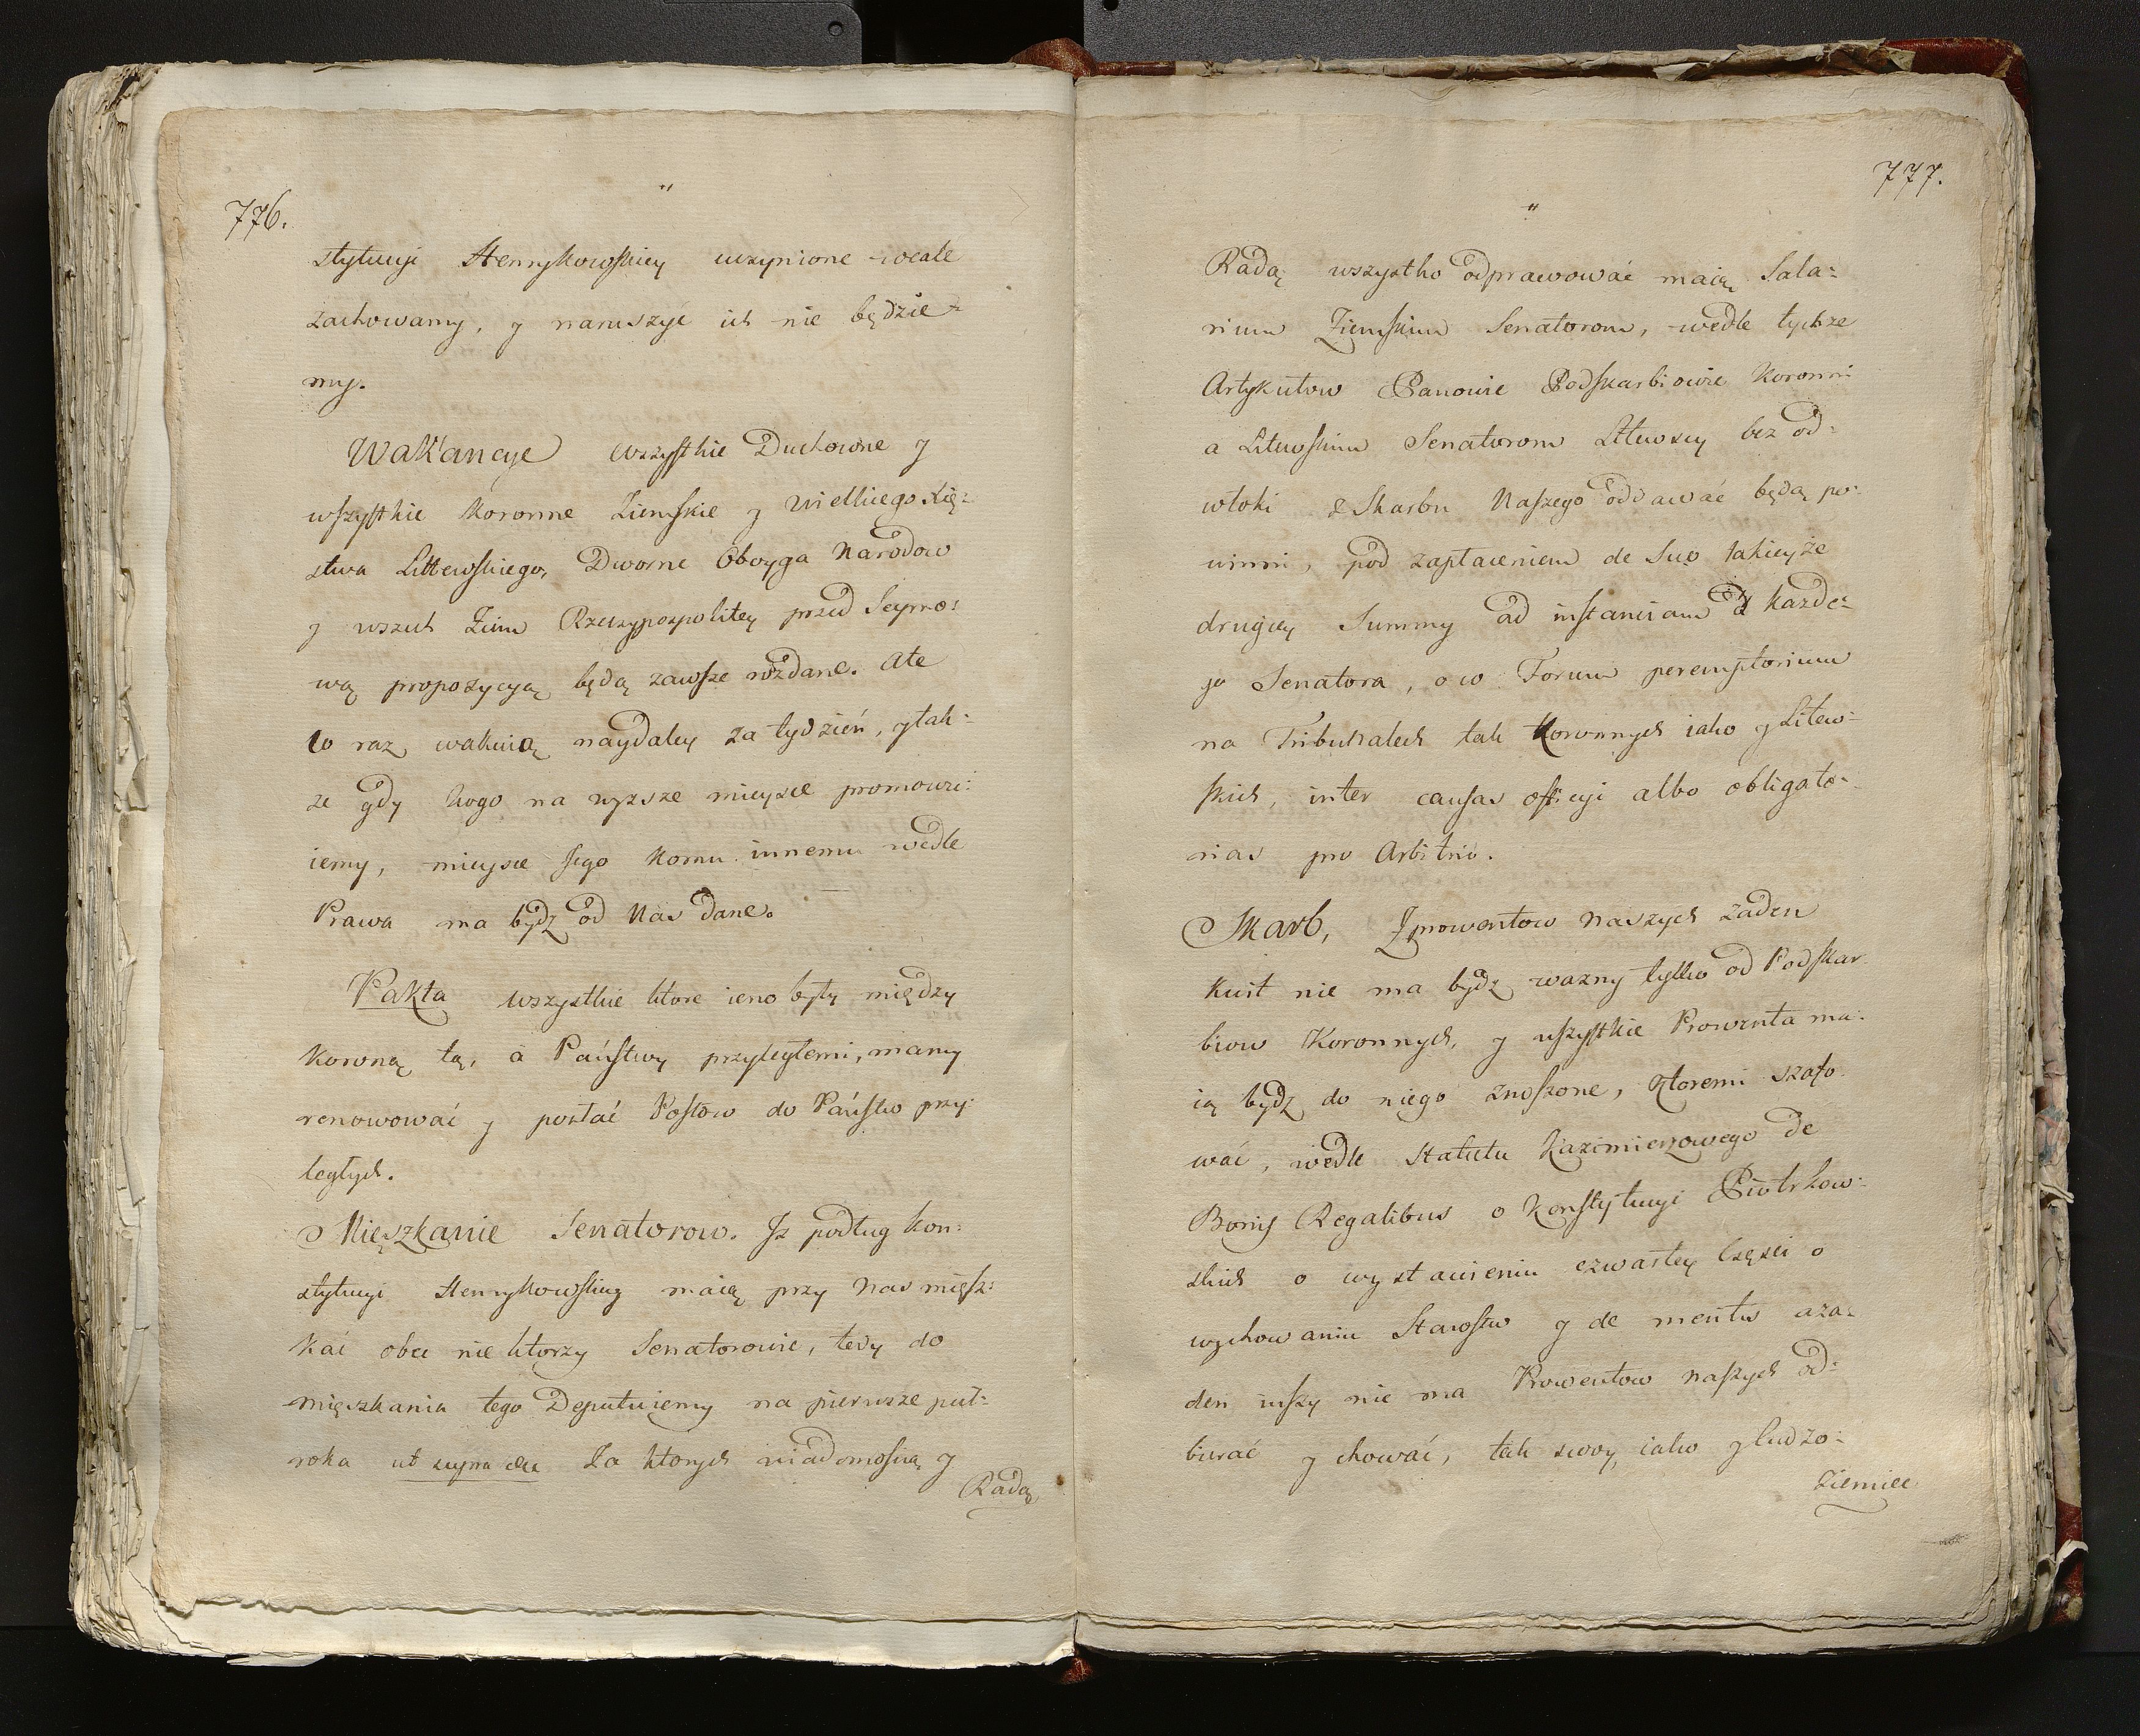 776.
stytucyi Henrykowskiey uczynione wcale
zachowamy, y naruszyć ich nie będzie-
my.
Wakancye wszystkie Duchowne y
wszystkie Koronne Ziemskie y Wielkiego Xię-
stwa Littewskiego, Dworne Oboyga Narodow
y wszech Ziem Rzeczypospolitey przed Seymo:
wą propozycyą będą zawsze rozdane. Ale
co raz wakuią naydaley za tydzień, y tak:
ze gdy kogo na wyzsze mieysce promowu:
iemy, mieysce Jego komu innemu wedle
Prawa ma bydz od Nas Dane.
Pakta wszystkie ktore ieno były między
Koroną tą, a Państwy przyległemi, mamy
renowować y posłać Posłow do Państw przy:
ległych.
Mięszkanie Senatorow. Iz podług kon:
stytucyi Henrykowskiey maią przy Nas mięsz:
kać obce niektorzy Senatorowie, tedy do
mięszkania tego Deputuiemy na pierwsze puł:
roka ut supra etc Za ktorych wiadomością y
Radą
777.
Radą wszystko odprawować maią Sala:
rium Ziemskim Senatorom, wedle tychze
Artykułow Panowie Podskarbiowie Koronni
a Litewskim Senatorom Litewscy bez od:
włoki z Skarbu Naszego oddawać będą po:
winni, pod zapłaceniem de Suo takieyże
drugiey Summy ad instanciam każde:
go Senatora, o co Forum peremptorium
na Tribunalech tak Koronnych iako y Litew:
skich, inter causas officyi albo obligato:
rias pro Arbitrio.
Skarb, Z prowentow naszych zaden
kwit nie ma bydz wazny tylko od Podskar
biow Koronnych, y wszystkie Prowenta ma:
ią bydz do niego znoszone, ktoremi szafo
wać, wedle Statutu Kazimierzowego de
Bonis Regalibus o Konstytucyi Piotrkow:
skich o wystawieniu czwartey Części o
wychowaniu Starostw y de mentis aza:
den inszy nie ma Prowentow naszych od:
bierać y chować, tak swoy, iako y Cudzo:
ziemiec